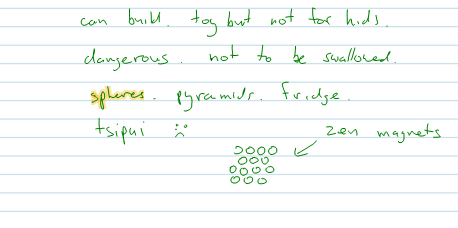 can build. toy but not for kids.
dangerous. not to be swallowed.
spheres. pyramids. fridge.
tsipui
zen magnets